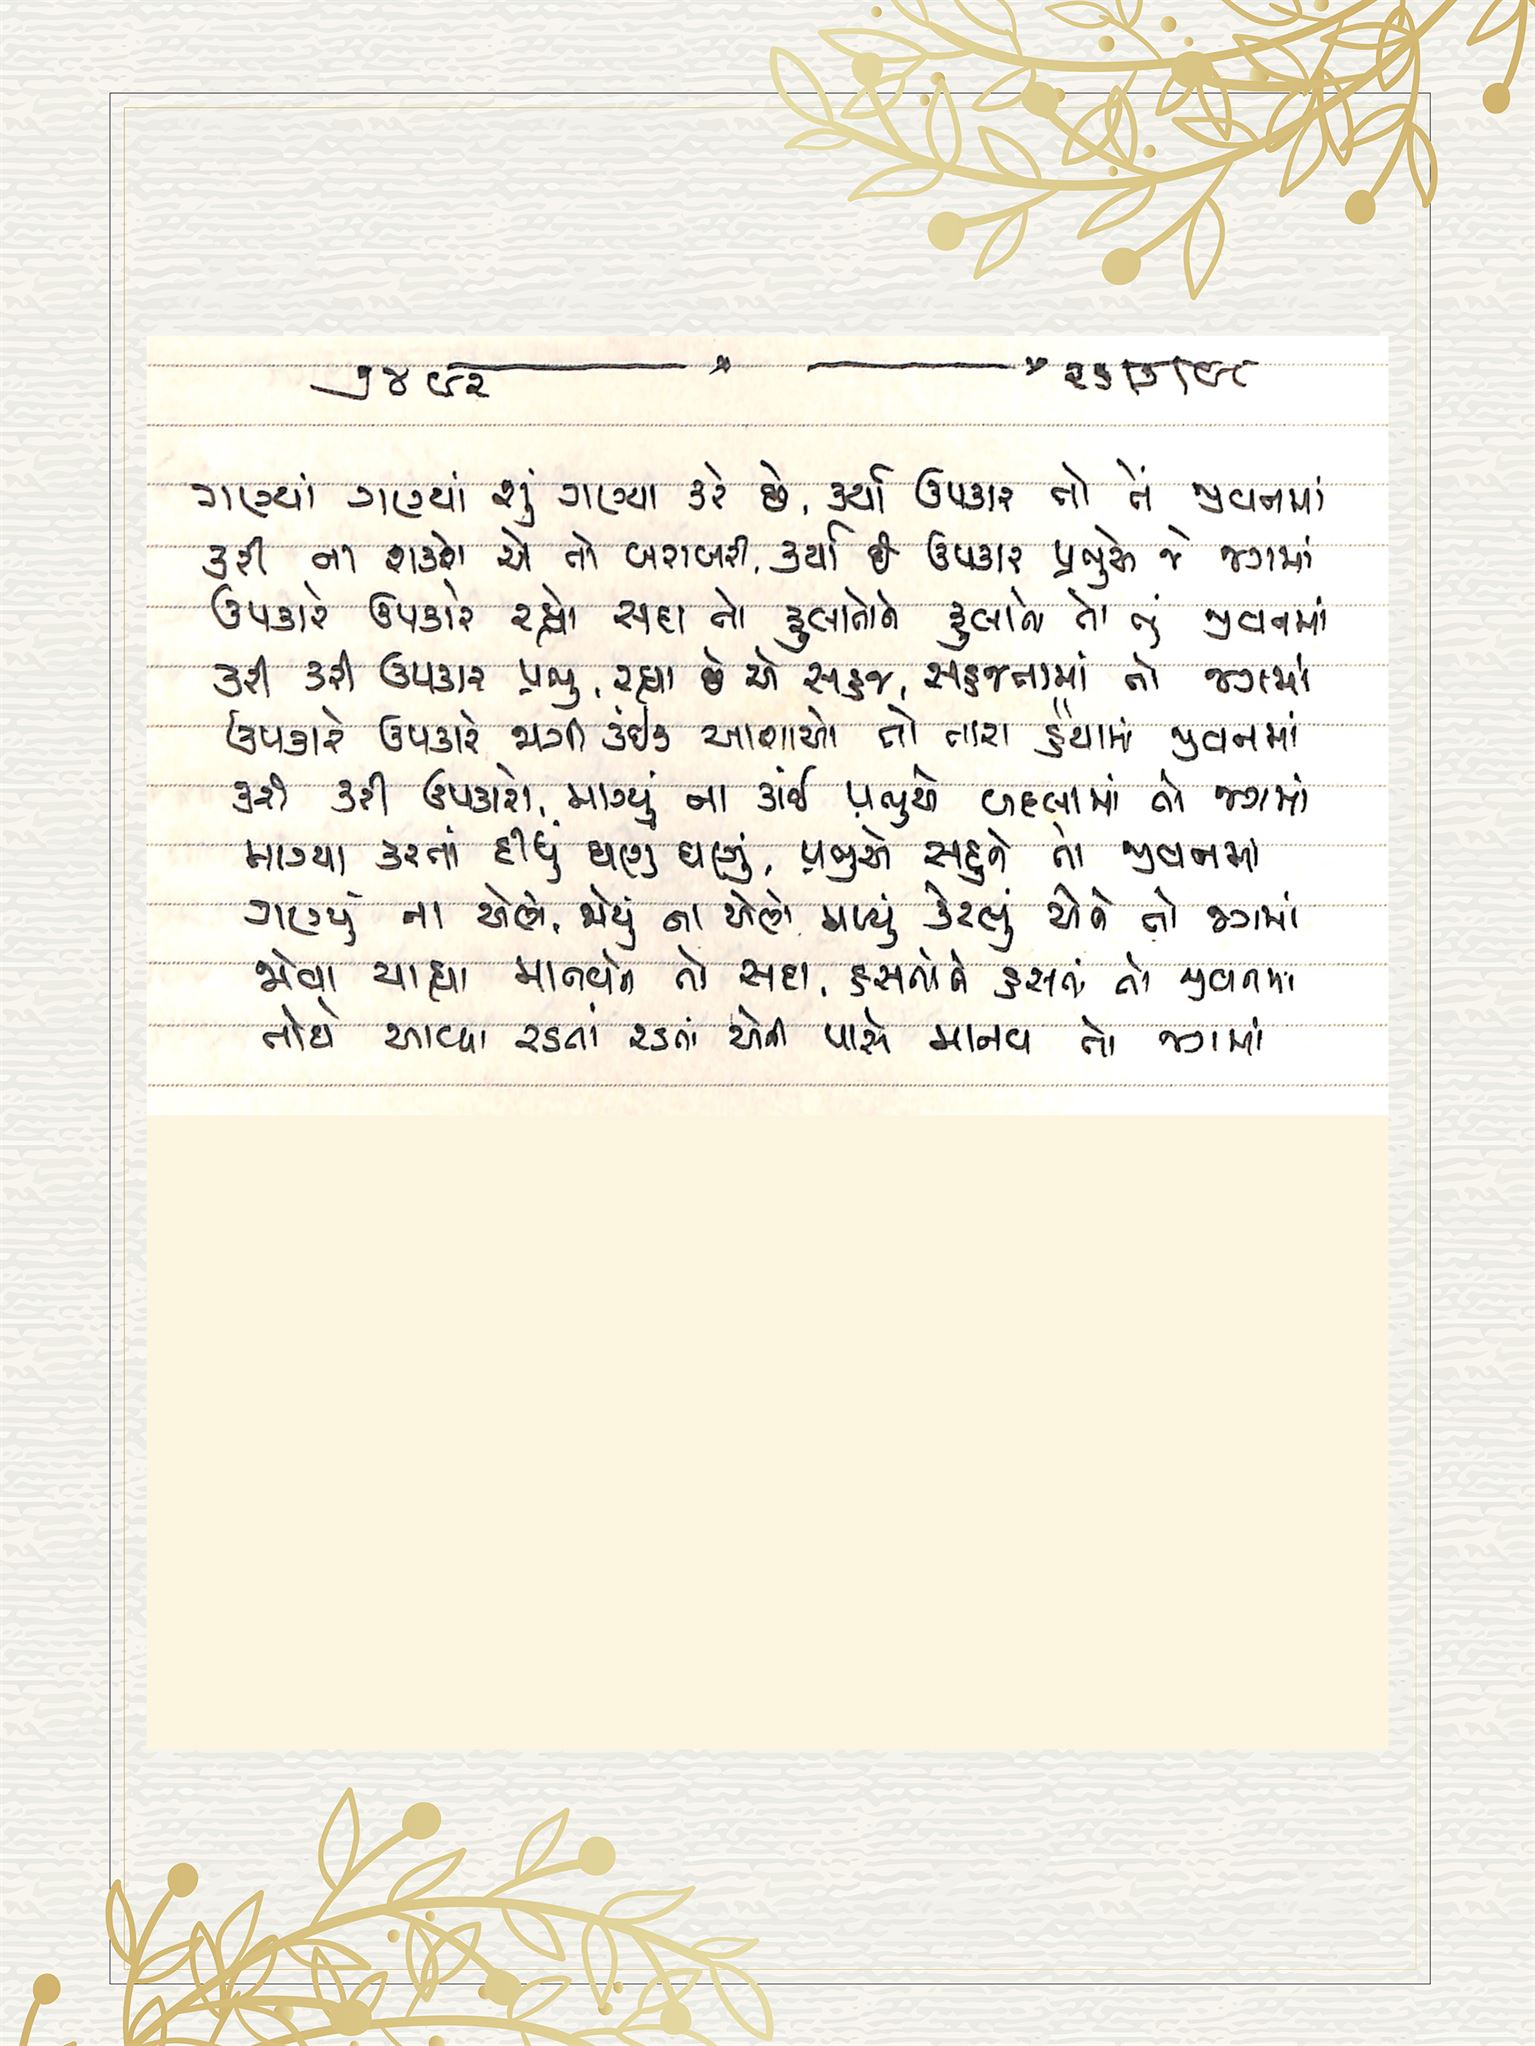 ૧૪૯૨ ૨૬/૬/૮૮
ગણ્યાં ગણ્યાં શું ગણ્યા કરે છે, કર્યા ઉપકાર તો તેં જીવનમાં
કરી ના શકશે એ તો બરાબરી, કર્યા છે ઉપકાર પ્રભુએ જે જગમાં
ઉપકારે ઉપકારે રહ્યો સદા તો ફુલાતોને ફુલાતો તો તું જીવનમાં
કરી કરી ઉપકાર પ્રભુ, રહ્યા છે એ સહજ, સહજતામાં તો જગમાં
ઉપકારે ઉપકારે જાગી કંઈક આશાઓ તો તારા હૈયામાં જીવનમાં
કરી કરી ઉપકારો, માગ્યું ના કાંઈ પ્રભુએ બદલામાં તો જગમાં
માગ્યા કરતાં દીધું ઘણું ઘણું, પ્રભુએ સહુને તો જીવનમાં
ગણ્યું ના એણે, જોયું ના એણે મળ્યું કેટલું એને તો જગમાં
જોવા ચાહ્યા માનવને તો સદા, હસતોને હસતો તો જીવનમાં
તોયે આવ્યા રડતાં રડતાં એની પાસે માનવ તો જગમાં